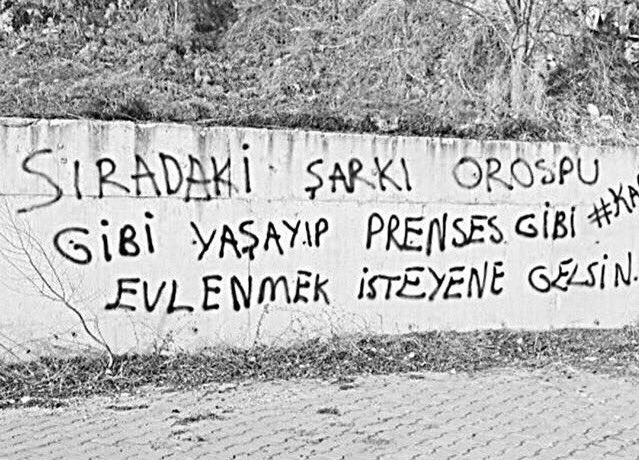 SIRADAKİ ŞARKI OROSPU
GİBİ YAŞAYIP PRENSES GİBİ
EVLENMEK İSTEYENE GELSİN.